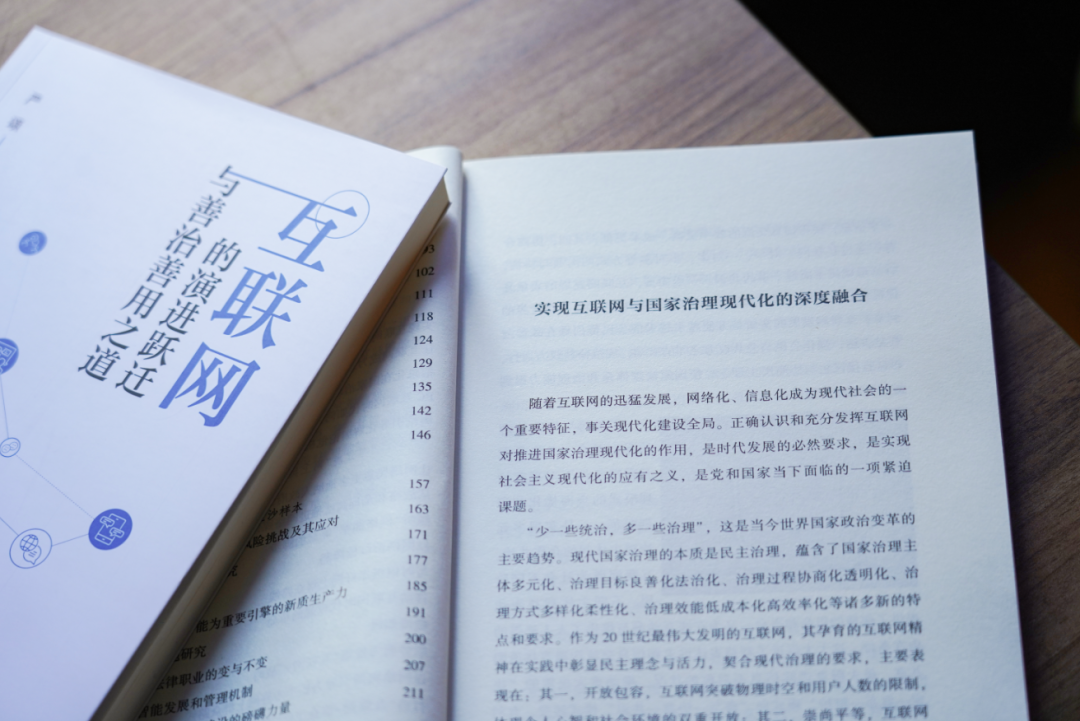 互联网
的演进跃迁
与善治善用之道
93
102
111
118
124
129
135
142
146
157
样本 163
风险挑战及其应对 171
177
185
能为重要引擎的新质生产力 191
研究 200
律职业的变与不变 207
智能发展和管理机制 211
的磅礴力量
实现互联网与国家治理现代化的深度融合
随着互联网的迅猛发展，网络化、信息化成为现代社会的一
个重要特征，事关现代化建设全局。正确认识和充分发挥互联网
对推进国家治理现代化的作用，是时代发展的必然要求，是实现
社会主义现代化的应有之义，是党和国家当下面临的一项紧迫
课题。
“少一些统治，多一些治理”，这是当今世界国家政治变革的
主要趋势。现代国家治理的本质是民主治理，蕴含了国家治理主
体多元化、治理目标良善化法治化、治理过程协商化透明化、治
理方式多样化柔性化、治理效能低成本化高效率化等诸多新的特
点和要求。作为 20 世纪最伟大发明的互联网，其孕育的互联网精
神在实践中彰显民主理念与活力，契合现代治理的要求，主要表
现在：其一，开放包容，互联网突破物理时空和用户人数的限制，
和社会环境的双重开放；其二，崇尚平等，互联网